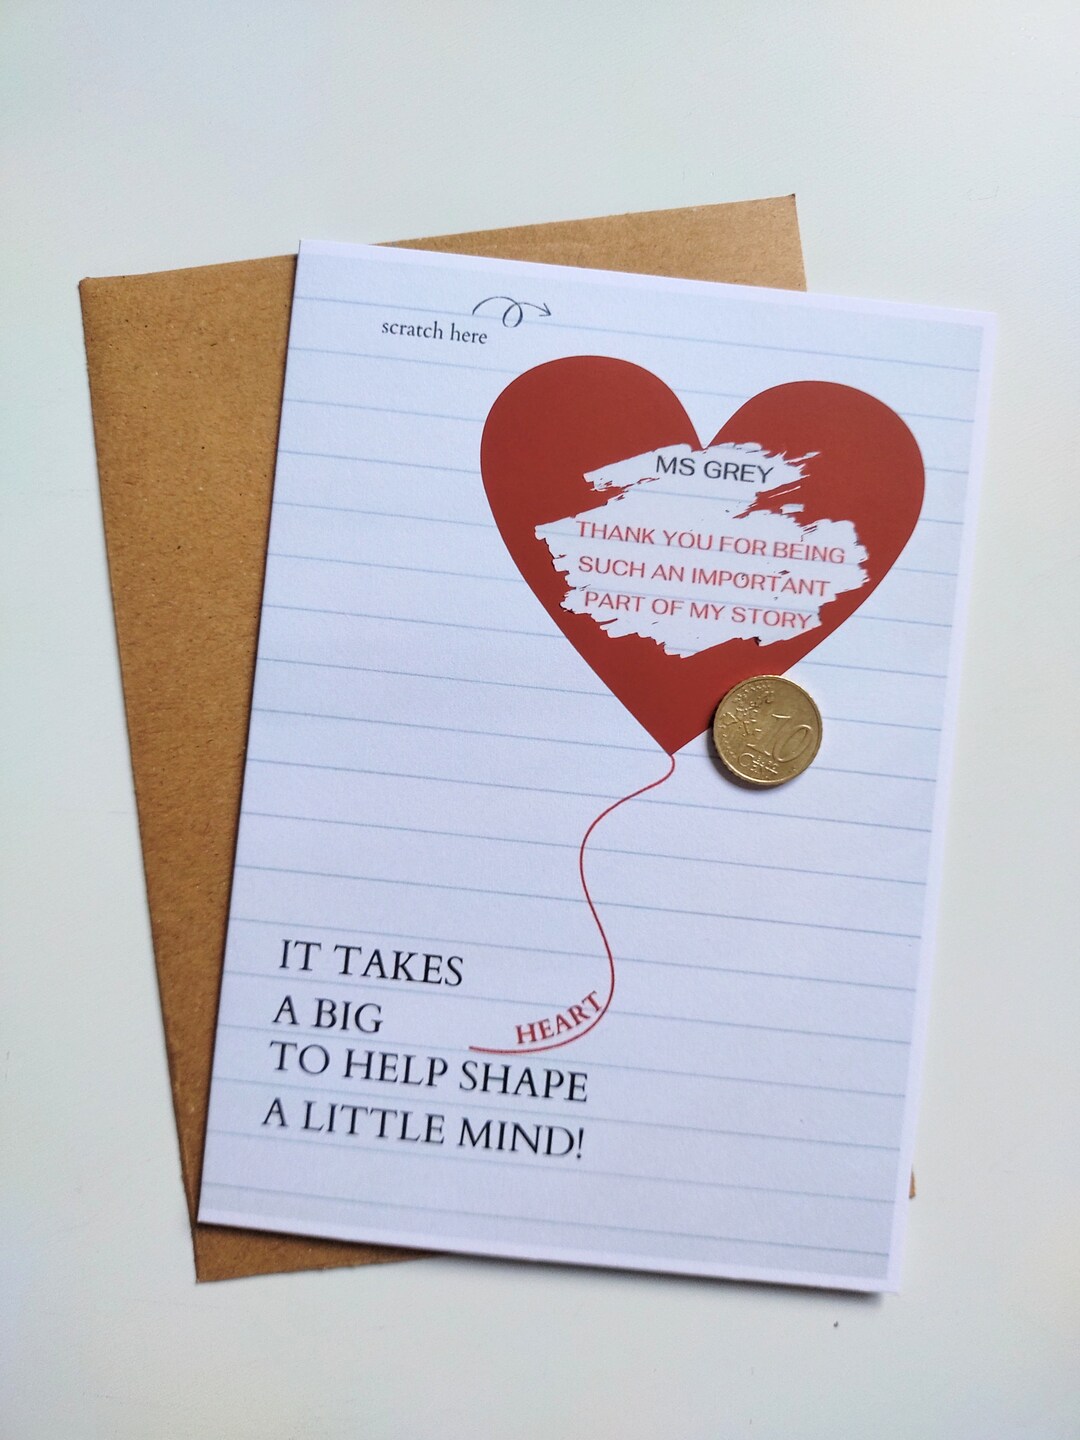 scratch here
MS GREY
THANK YOU FOR BEING
SUCH AN IMPORTANT
PART OF MY STORY
10
CENT
IT TAKES
A BIG
HEART
TO HELP SHAPE
A LITTLE MIND!